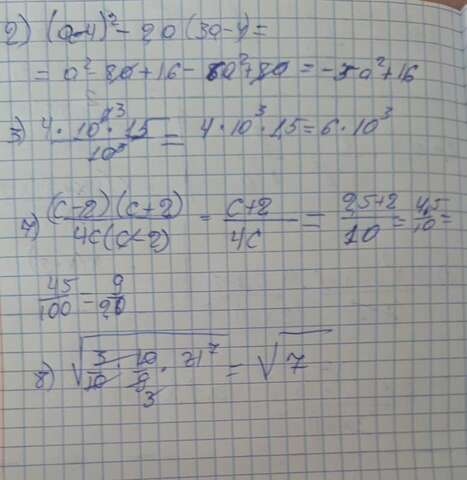 2) (a-4)² - 2a(3a-4)=
= a² - 8a + 16 - 6a² + 8a = -5a² + 16
3) 4 · 10^3 · 1,5 = 4 · 10³ · 1,5 = 6 · 10³
10³
7) (c-2)(c+2) / 4c(c-2) = c+2 / 4c = 2,5+2 / 10 = 4,5 / 10 =
45/100 = 9/20
8) √(3/10 · 10/9 · 21⁷) = √7
3